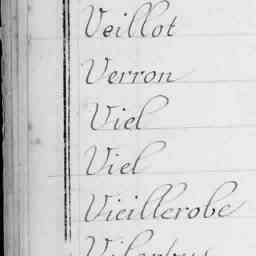 Veillot
Verron
Viel
Viel
Vieillerobe